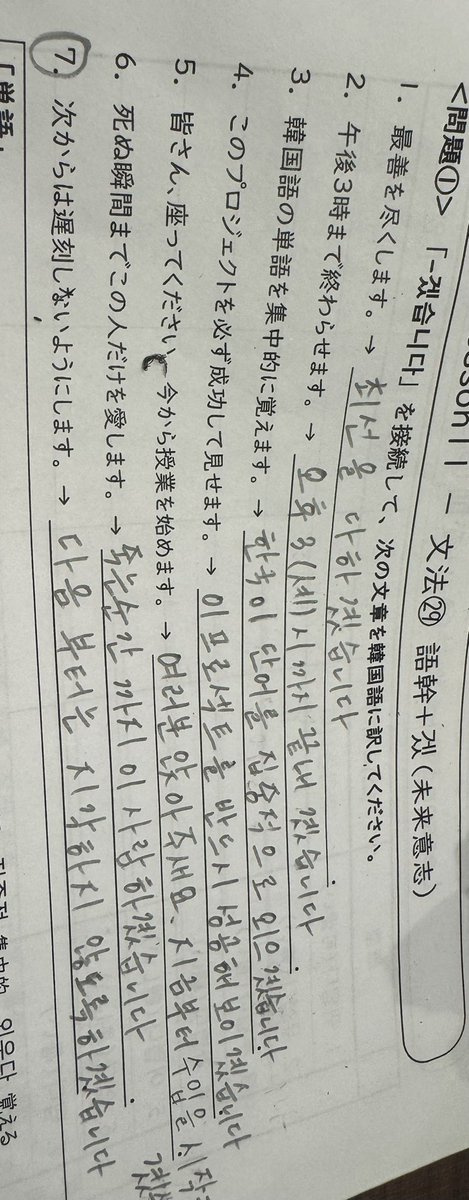 ー 文法㉙ 語幹＋겠（未来意志）
<問題①> 「-겠습니다」を接続して、次の文章を韓国語に訳してください。
1. 最善を尽くします。→ 최선을 다하겠습니다
2. 午後3時まで終わらせます。→ 오후 3(세)시까지 끝내겠습니다.
3. 韓国語の単語を集中的に覚えます。→ 한국어 단어를 집중적으로 외으겠습니다
4. このプロジェクトを必ず成功して見せます。→ 이 프로섹트를 반드시 성공해보이겠습니다
5. 皆さん、座ってください。今から授業を始めます。→ 여러분 앉아주새요. 지금부터 수업을 시작
6. 死ぬ瞬間までこの人だけを愛します。→ 죽는순간 까지 이 사람하겠습니다.
7. 次からは遅刻しないようにします。→ 다음 부터는 지각하지 않도록하겠습니다
「単語」
集中的 외우다 覚える